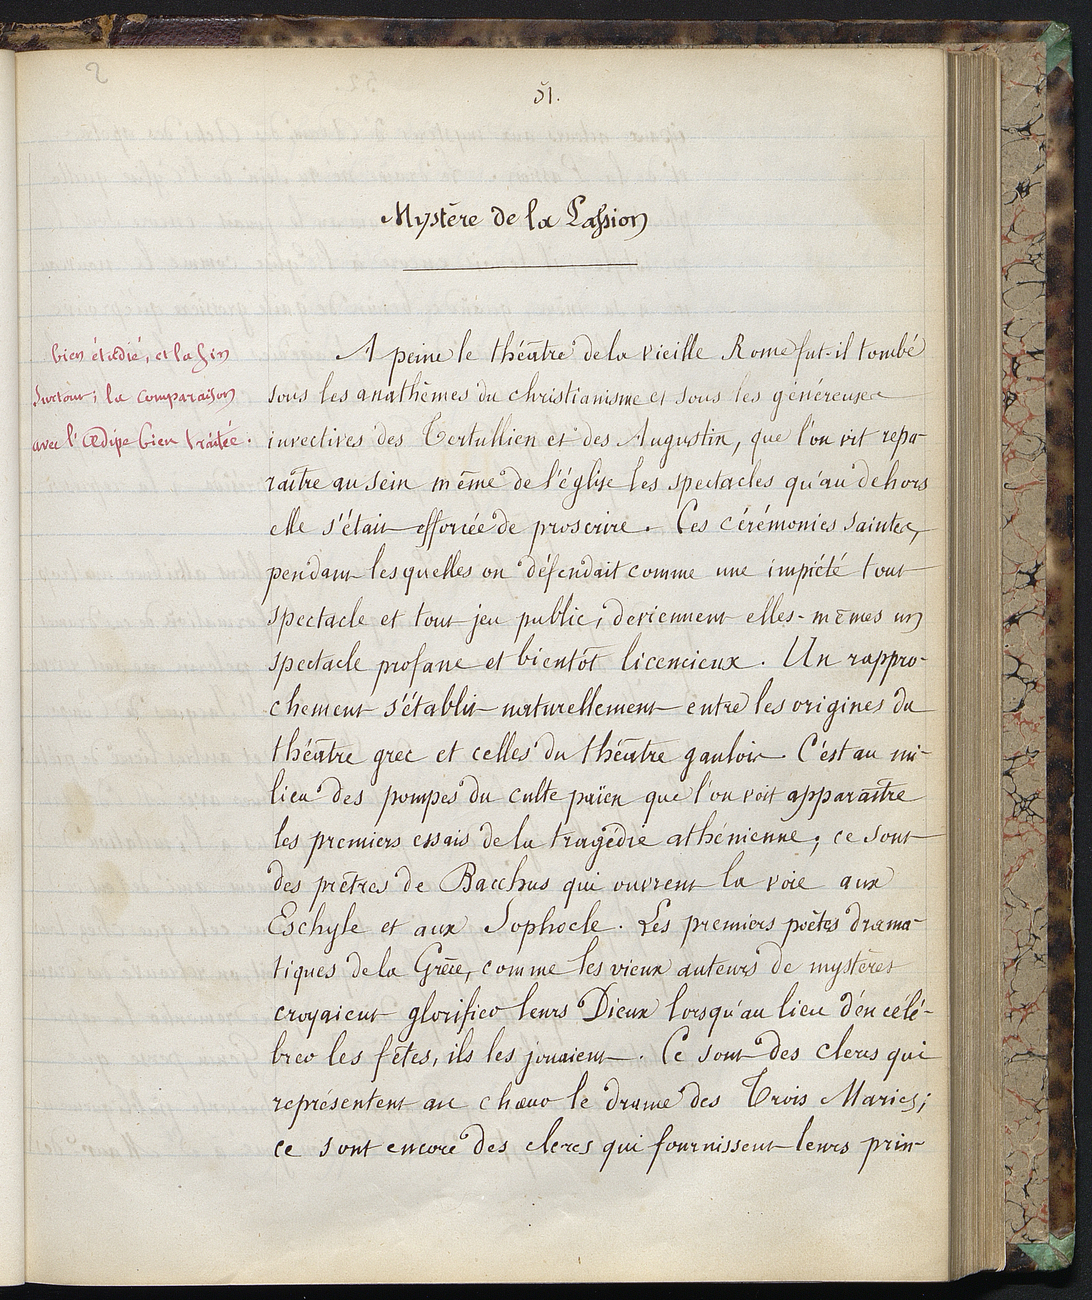 51.
Mystère de la Passion
bien étudié, et la fin
surtout; la comparaison
avec l'Œdipe bien traitée.
A peine le théâtre de la vieille Rome fut-il tombé
sous les anathèmes du christianisme et sous les généreuses
invectives des Tertullien et des Augustin, que l'on vit repa-
raître au sein même de l'église les spectacles qu'au dehors
elle s'était efforcée de proscrire. Ces cérémonies saintes,
pendant lesquelles on défendait comme une impiété tout
spectacle et tout jeu public, deviennent elles-mêmes un
spectacle profane et bientôt licencieux. Un rappro-
chement s'établit naturellement entre les origines du
théâtre grec et celles du théâtre gaulois. C'est au mi-
lieu des pompes du culte païen que l'on voit apparaître
les premiers essais de la tragédie athénienne; ce sont
des prêtres de Bacchus qui ouvrent la voie aux
Eschyle et aux Sophocle. Les premiers poètes drama-
tiques de la Grèce, comme les vieux auteurs de mystères
croyaient glorifier leurs Dieux lorsqu'au lieu d'en célé-
brer les fêtes, ils les jouaient. Ce sont des clercs qui
représentent au chœur le drame des Trois Maries;
ce sont encore des clercs qui fournissent leurs prin-